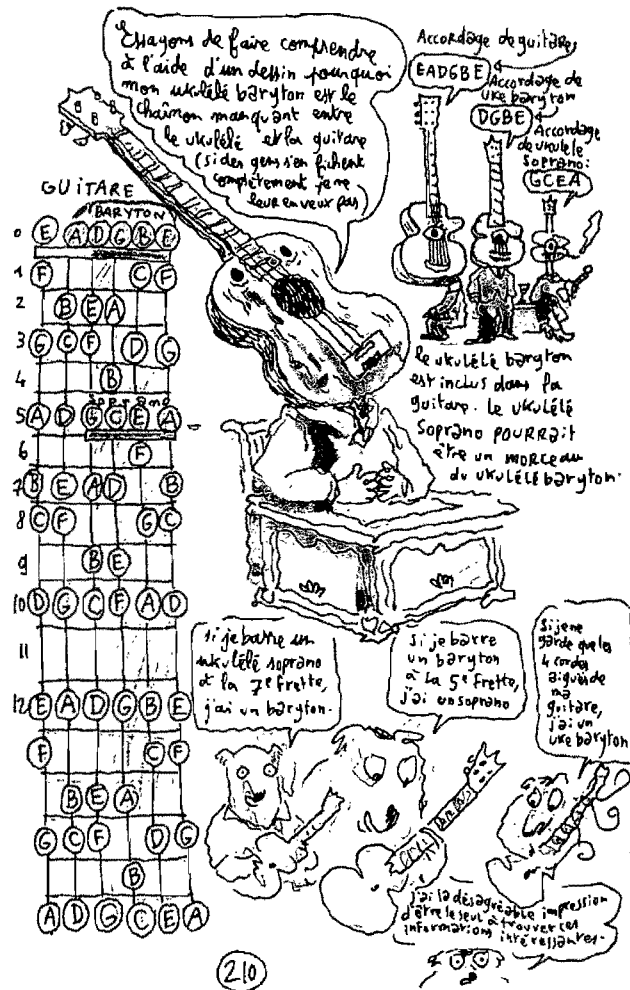 Essayons de faire comprendre
à l'aide d'un dessin pourquoi
mon ukulélé baryton est le
chaînon manquant entre
le ukulélé et la guitare
(si des gens s'en fichent
complètement je ne
leur en veux pas)
Accordage de guitare
EADGBE
Accordage de
uke baryton
DGBE
Accordage
de ukulélé
soprano:
GCEA
GUITARE
BARYTON
0 E A D G B E
1 F C F
2 B E A
3 G C F D G
4 B
soprano
5 A D G C E A
6 F
7 B E A D B
8 C F G C
9 B E
10 D G C F A D
11
12 E A D G B E
F C F
B E A
G C F D G
B
A D G C E A
le ukulélé baryton
est inclus dans la
guitare. le ukulélé
soprano POURRAIT
être un morceau
du ukulélé baryton.
si je barre un
ukulélé soprano
à la 7e frette,
j'ai un baryton.
si je barre
un baryton
à la 5e frette,
j'ai un soprano
si je ne
garde que les
4 cordes
aiguës de
ma
guitare,
j'ai un
uke baryton
j'ai la désagréable impression
d'être le seul à trouver ces
informations intéressantes.
210